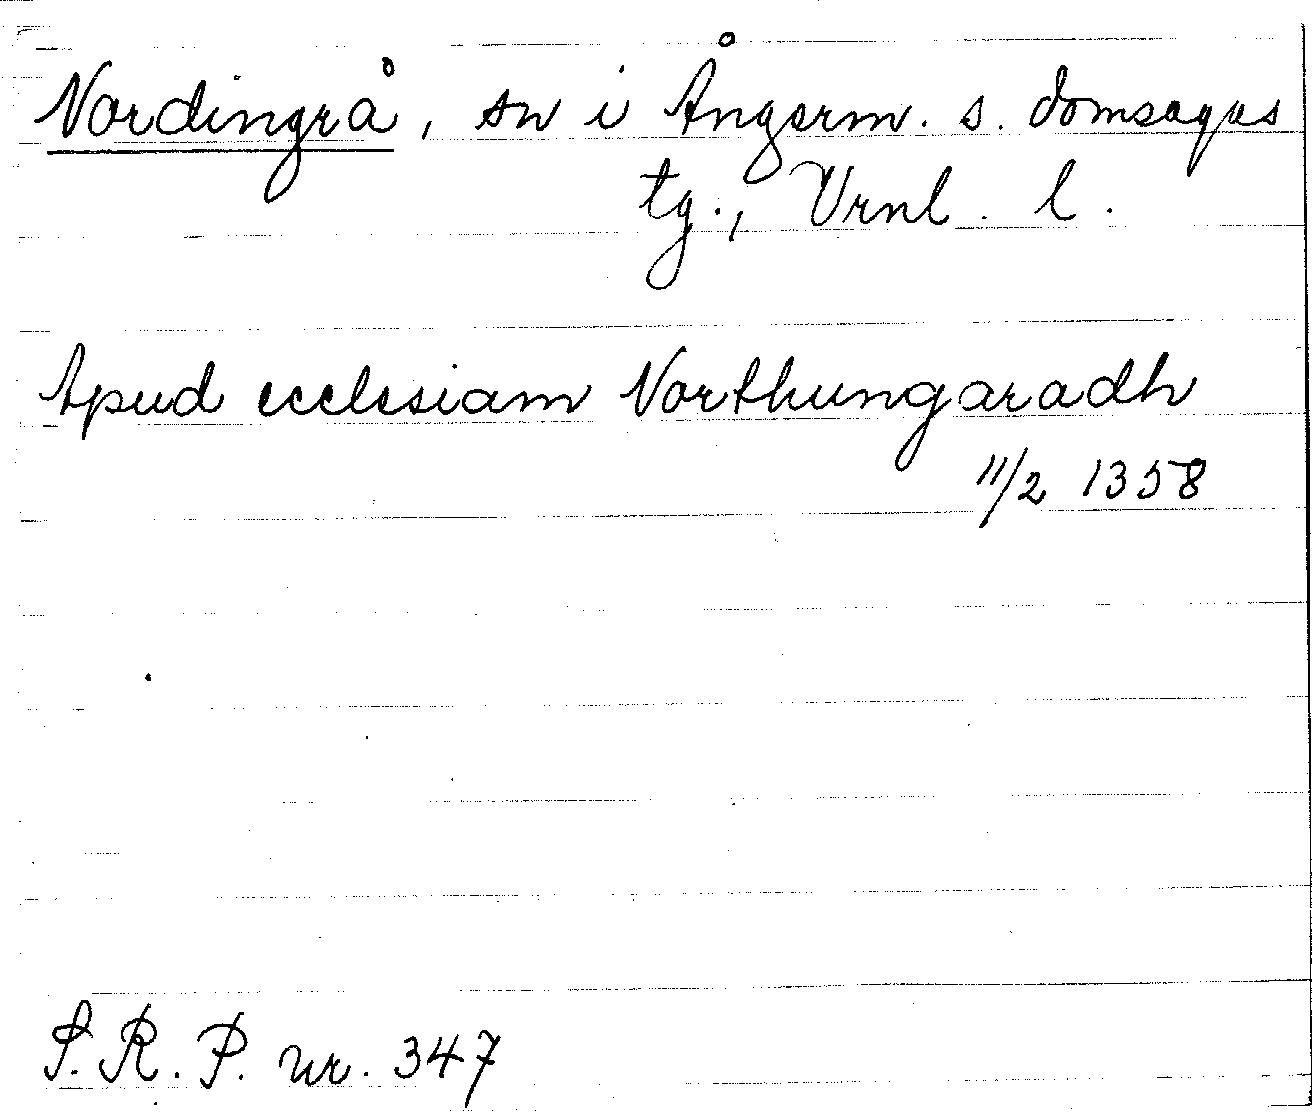 Nordingrå, sn i Ångerm. s. domsagas
tg., Vrnl. l.
Apud ecclesiam Northungaradh
11/2 1358
S.R.P. nr. 347